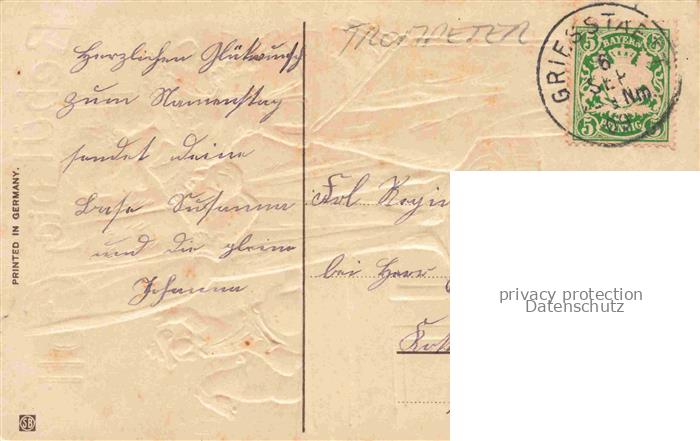 Herzlichen Glükwunsch
zum Namenstag
sendet deine
Base Susanna
und die kleine
Johanna
PRINTED IN GERMANY.
SB
TROMPETER
GRIESSTÄ
6
SEP
BAYERN
5 5
5 5
PFENNIG
Frl Regi
bei Herr
privacy protection
Datenschutz